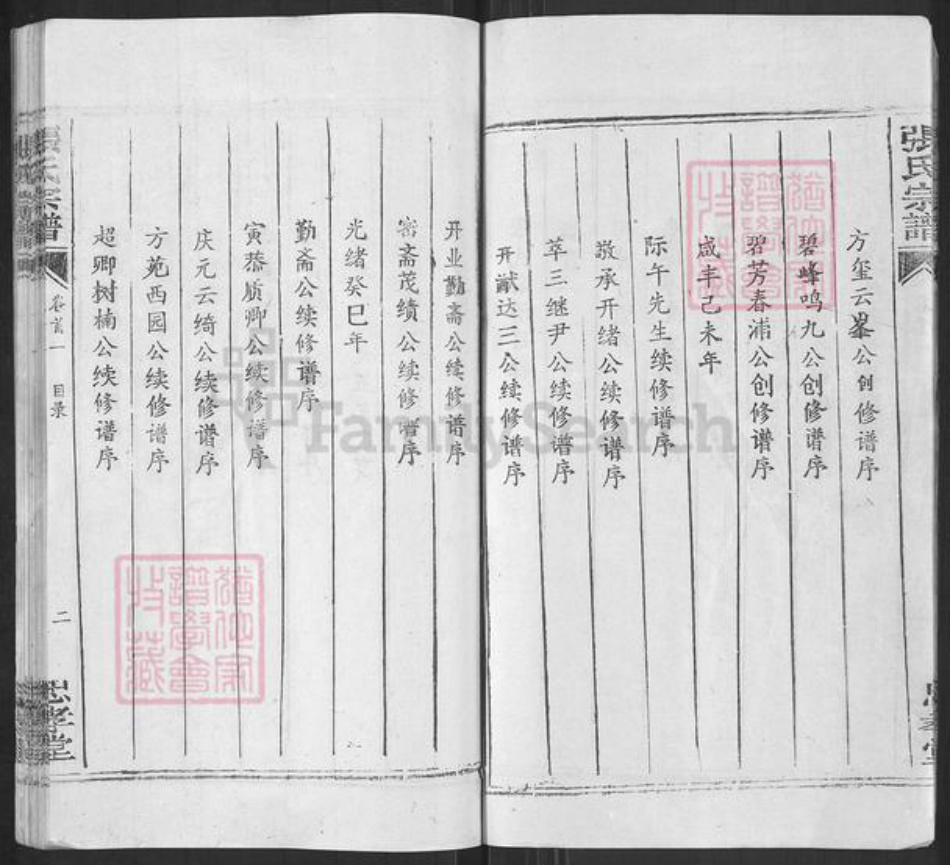 張氏宗譜
方玺云峯公创修谱序
碧峰鸣九公创修谱序
碧芳春浦公创修谱序
咸丰己未年
际午先生续修谱序
敬承开绪公续修谱序
萃三继尹公续修谱序
开猷达三公续修谱序
开业勤斋公续修谱序
密斋茂绩公续修谱序
光绪癸巳年
勤斋公续修谱序
寅恭质卿公续修谱序
庆元云绮公续修谱序
方苑西园公续修谱序
超卿树楠公续修谱序
張氏宗譜
卷首一
目录
二
忠孝堂
FamilySearch